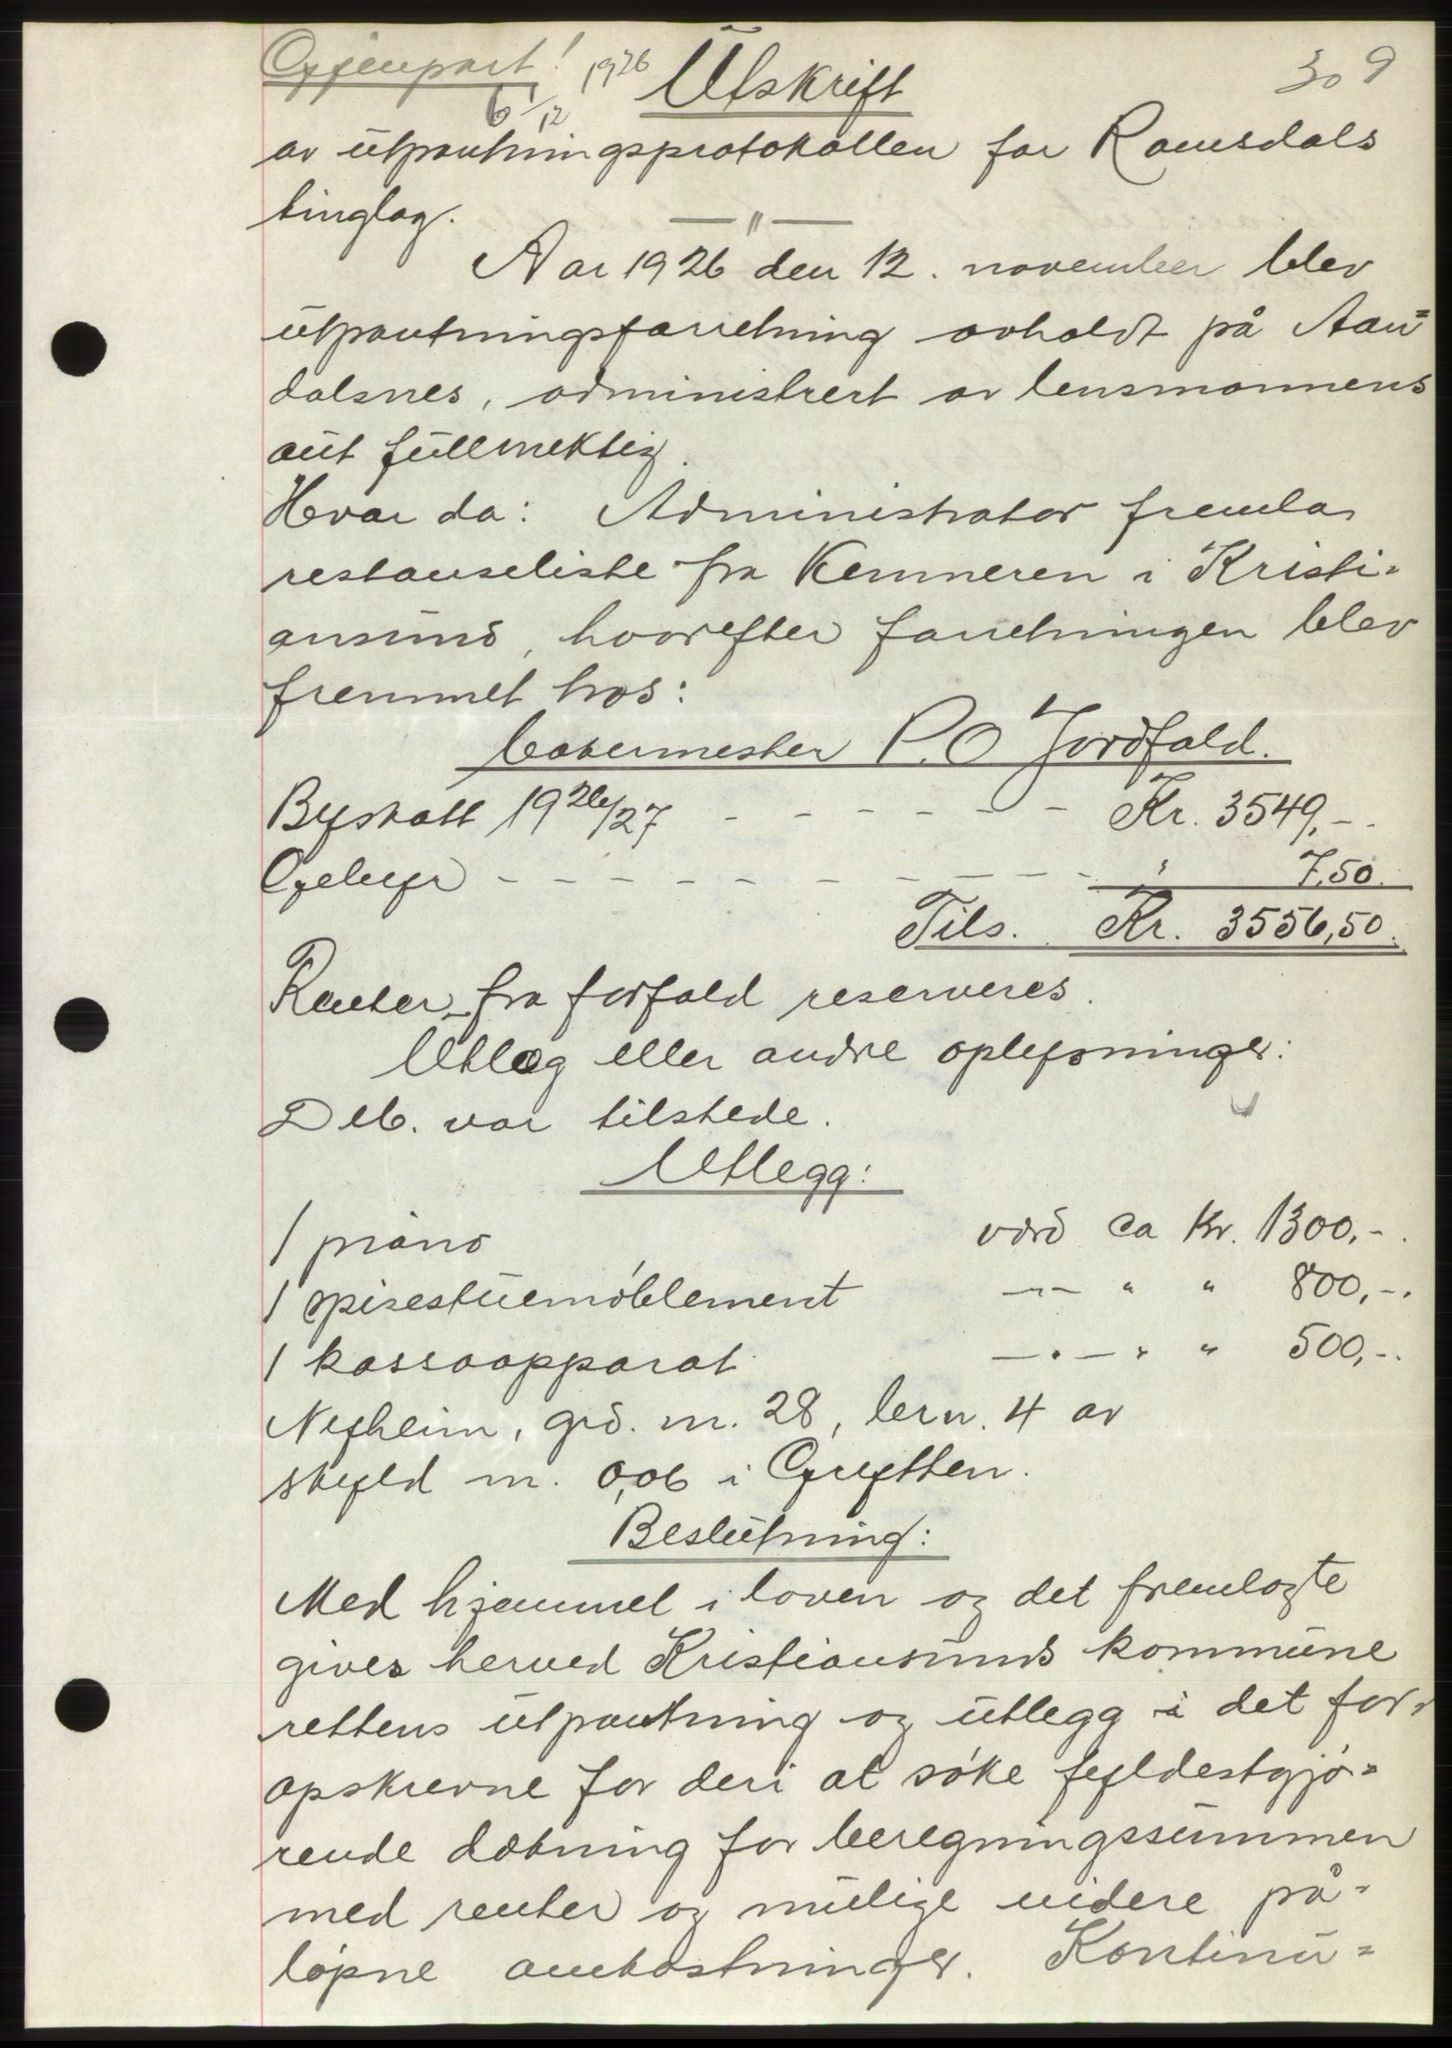 Gjenpart! 1926 Utskrift 309
6/12
av utpantningsprotokollen for Romsdals
tinglag.
— " —
Aar 1926 den 12. november blev
utpantningsforretning avholdt på Aan=
dalsnes, administrert av lensmannens
aut fullmektig.
Hvor da: Administrator fremla
restanseliste fra Kemneren i Kristi-
ansund, hvorefter forretningen blev
fremmet hos:
Bakermester P. O Jordfald.
Byskatt 1926/27 - - - - - - Kr. 3549,-.
Gebyr - - - - - - - - - - - " 7,50.
Tils. Kr. 3556,50.
Renter fra forfald reserveres.
Utlæg eller andre oplysninger:
Deb. var tilstede.
Utlegg:
1 piano værd ca Kr. 1300,-.
1 spisestuemöblement —"— " " 800,-.
1 kassaapparat —"— " " 500,-.
Nyheim, grd. nr. 28, brn. 4 av
skyld m. 0,06 i Grytten.
Beslutning:
Med hjemmel i loven og det fremlagte
gives herved Kristiansunds kommune
rettens utpantning og utlegg i det for-
opskrevne for deri at söke fyldestgjö-
rende dækning for beregningssummen
med renter og mulige videre på-
löpne omkostninger. Kontinu=